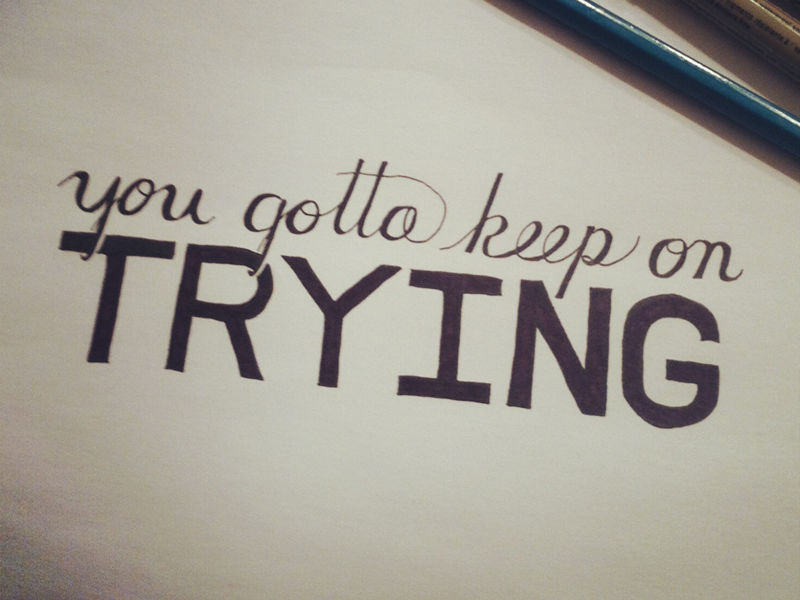 you gotta keep on
TRYING